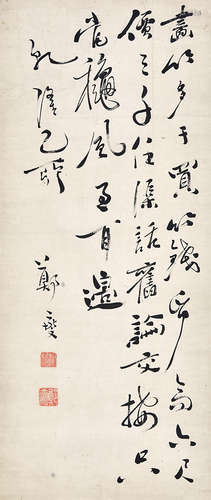 畫竹多于買竹錢帋高六尺
價三千任渠話舊論交接只
當穐風過耳邊
乾隆己卯
鄭燮